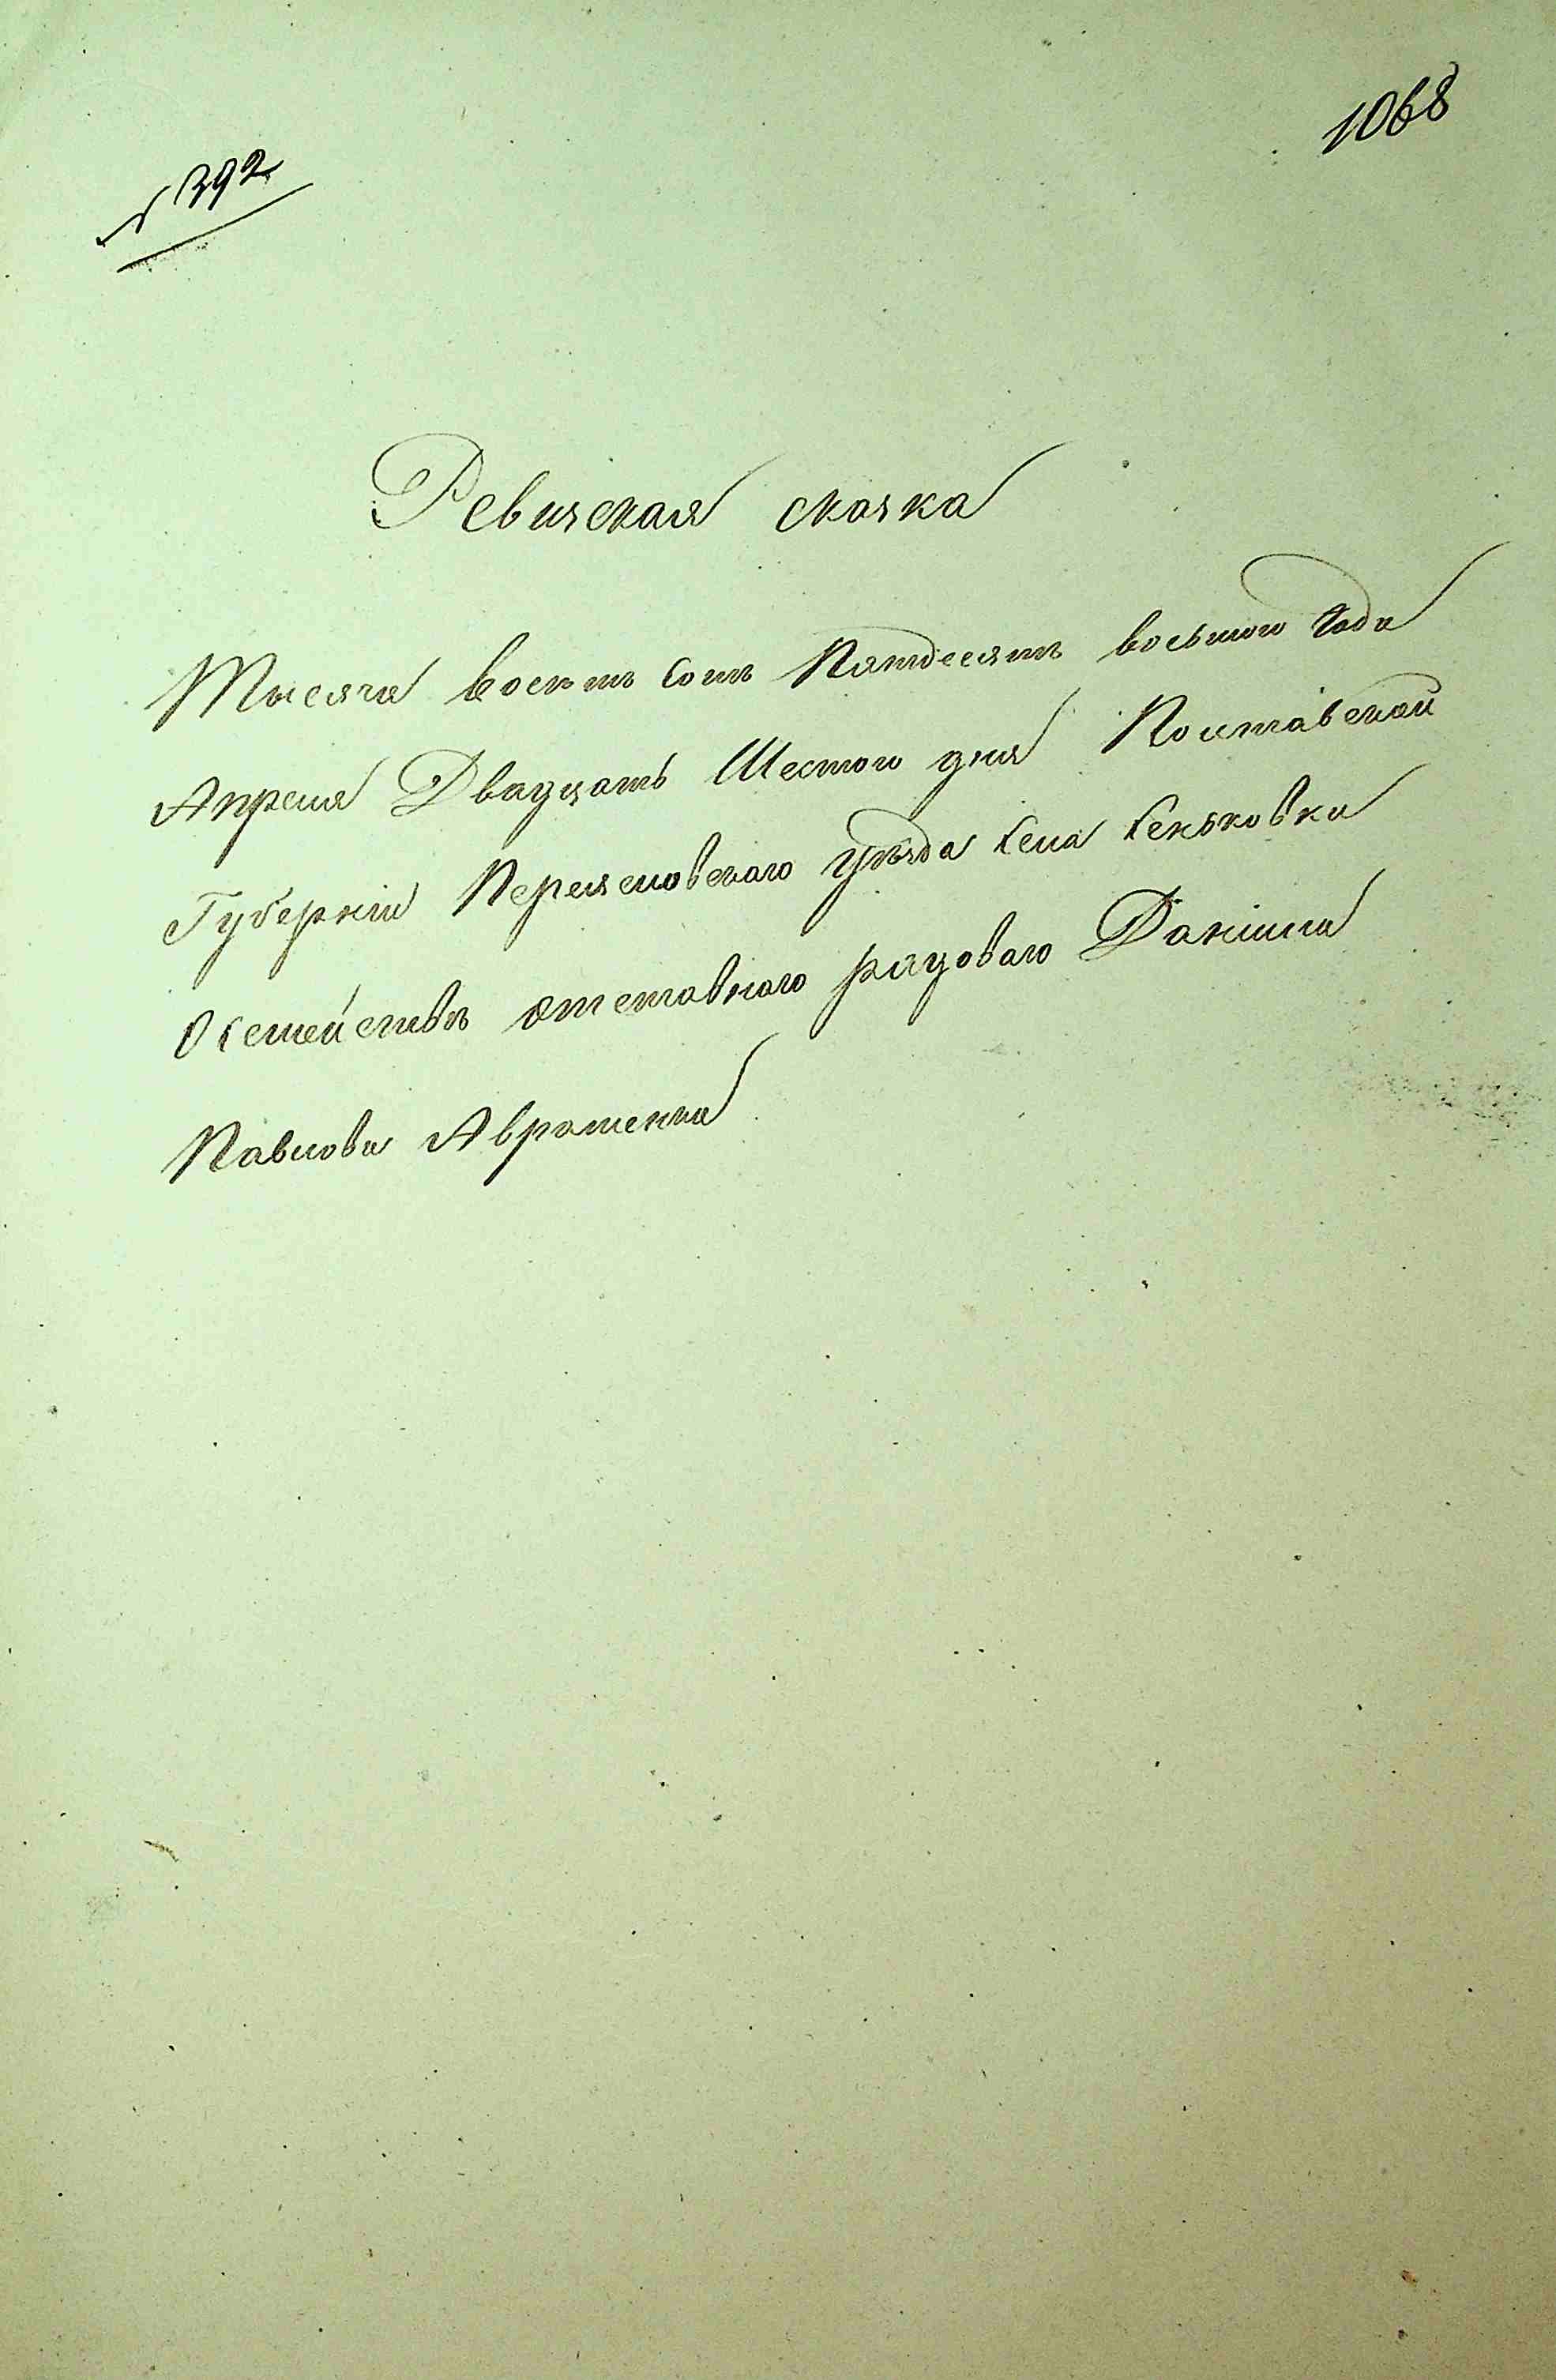 1068
№ 392
Ревизская сказка
Тысяча восемь сотъ Пятдесятъ восьмого Года
Апреля Двадцать Шестого дня Полтавской
Губерніи Переяславскаго уѣзда Села Сеньковки
О Семействѣ отставнаго рядоваго Даніила
Павлова Авраменка